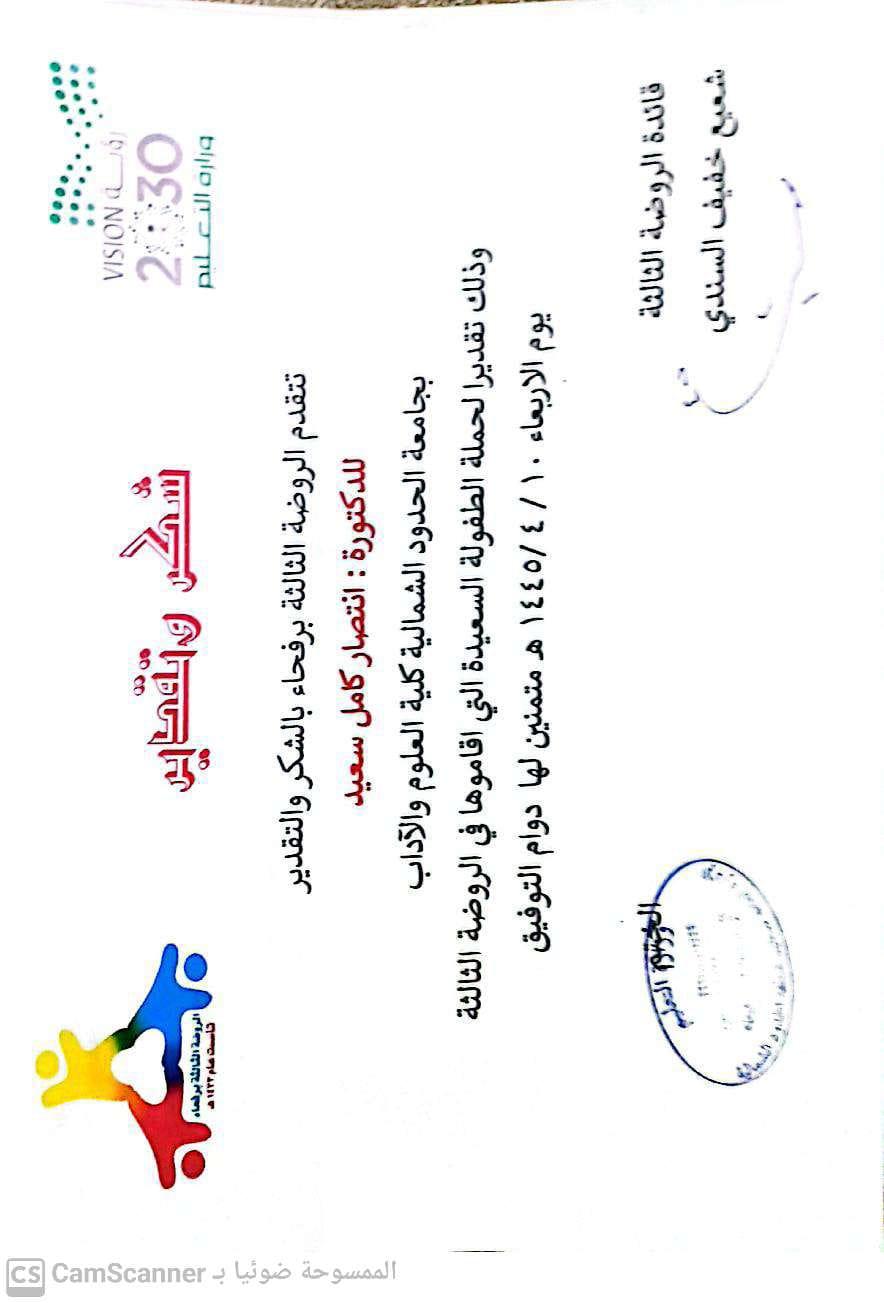 رؤية VISION
2030
وزارة التعليم
شكر وتقدير
الروضة الثالثة برفحاء
تتقدم الروضة الثالثة برفحاء بالشكر والتقدير
للدكتورة : انتصار كامل سعيد
بجامعة الحدود الشمالية كلية العلوم والآداب
وذلك تقديرا لحملة الطفولة السعيدة التي اقاموها في الروضة الثالثة
يوم الاربعاء ١٠ / ٤ /١٤٤٥ هـ متمنين لها دوام التوفيق
قائدة الروضة الثالثة
شعيع خفيف السندي
الختم
CS CamScanner الممسوحة ضوئيا بـ